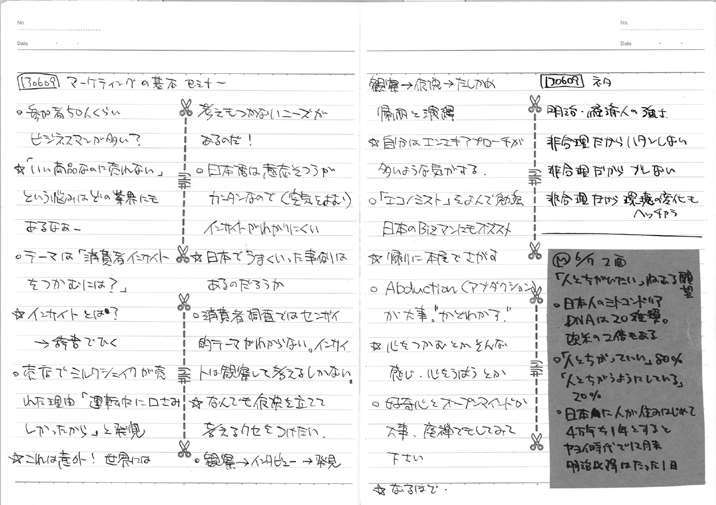 No.
Date
130609 マーケティングの基本 セミナー
○参加者50人くらい
ビジネスマンが多い?
☆「いい商品なのに売れない」
という悩みはどの業界にも
あるなぁー
○テーマは「消費者インサイト
をつかむには?」
☆インサイトとは?
→辞書でひく
○売店でミルクシェイクが売
れた理由「運転中に口さみ
しかったから」と発見
☆これは意外! 世界には
考えもつかないニーズが
あるのだ!
○日本では意思そつうが
カンタンなので(空気をよむ)
インサイトがわかりにくい
☆日本でうまくいった事例は
あるのだろうか
○消費者調査ではセンザイ
的テーマがわからない。インサイ
トは観察して考えるしかない。
☆なんでも仮説を立てて
考えるクセをつけたい。
○観察→インタビュー→発見
No.
Date
観察→仮説→たしかめ
帰納と演繹
☆自分はエンエキアプローチが
多いような気がする。
○「エコノミスト」をよんで勉強
日本のBizマンにもオススメ
☆帰りに本屋でさがす
○Abduction(アブダクション)
が大事。"かどわかす"
☆心をつかむとか、そんな
感じ。心をうばうとか
○好奇心とオープンマインドが
大事。座禅でもしてみて
下さい
☆なるほど。
130609 ネタ
明治・経済人の強さ
非合理だからハタンしない
非合理だから ブレない
非合理だから 環境の変化も
ヘッチャラ
2面
「人とちがいたい」ねづよい願望
○日本人のミトコンドリア
DNAは20種類。
欧米の2倍もある
○「人とちがっていい」80%
「人とちがうようにしている」
20%
○日本に人が住みはじめて
4万年を1年とすると
ヤヨイ時代で12月末
明治以降はたった1日